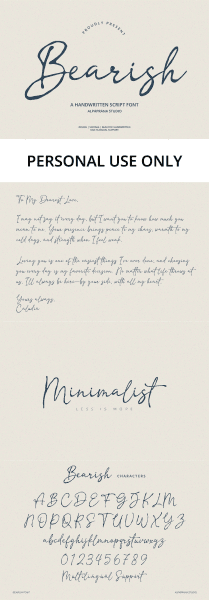 PROUDLY PRESENT
Bearish
A HANDWRITTEN SCRIPT FONT
ALPAPRANA STUDIO
PERSONAL USE ONLY
To My Dearest Love,
I may not say it every day, but I want you to know how much you
mean to me. Your presence brings peace to my chaos, warmth to my
cold days, and strength when I feel weak.
Loving you is one of the easiest things I've ever done, and choosing
you every day is my favorite decision. No matter what life throws at
us, I'll always be here—by your side, with all my heart.
Yours always,
Minimalist
LESS IS MORE
Bearish CHARACTERS
ABCDEFGHIJKLM
NOPQRSTUVWXYZ
abcdefghijklmnopqrstuvwxyz
0123456789
Multilingual Support
BEARISH FONT
ALPAPRANA STUDIO